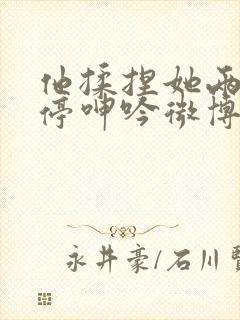 他揉捏她两
停呻吟微博
永井豪/石川賢